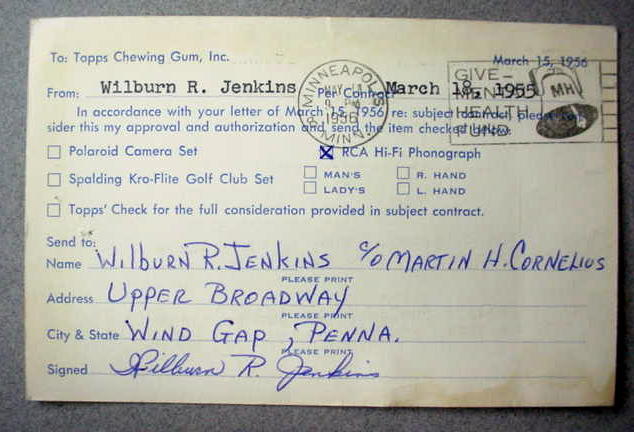 To: Topps Chewing Gum, Inc. March 15, 1956
From: Wilburn R. Jenkins Per Contract March 18, 1955
MINNEAPOLIS MINN. 1956
GIVE- MENTAL HEALTH FUND MH
In accordance with your letter of March 15, 1956 re: subject contract, please
sider this my approval and authorization and send the item checked below.
Polaroid Camera Set
RCA Hi-Fi Phonograph
Spalding Kro-Flite Golf Club Set MAN'S R. HAND
LADY'S L. HAND
Topps' Check for the full consideration provided in subject contract.
Send to:
Name WILBURN R. JENKINS C/O MARTIN H. CORNELIUS
PLEASE PRINT
Address UPPER BROADWAY
PLEASE PRINT
City & State WIND GAP, PENNA.
PLEASE PRINT
Signed Wilburn R. Jenkins